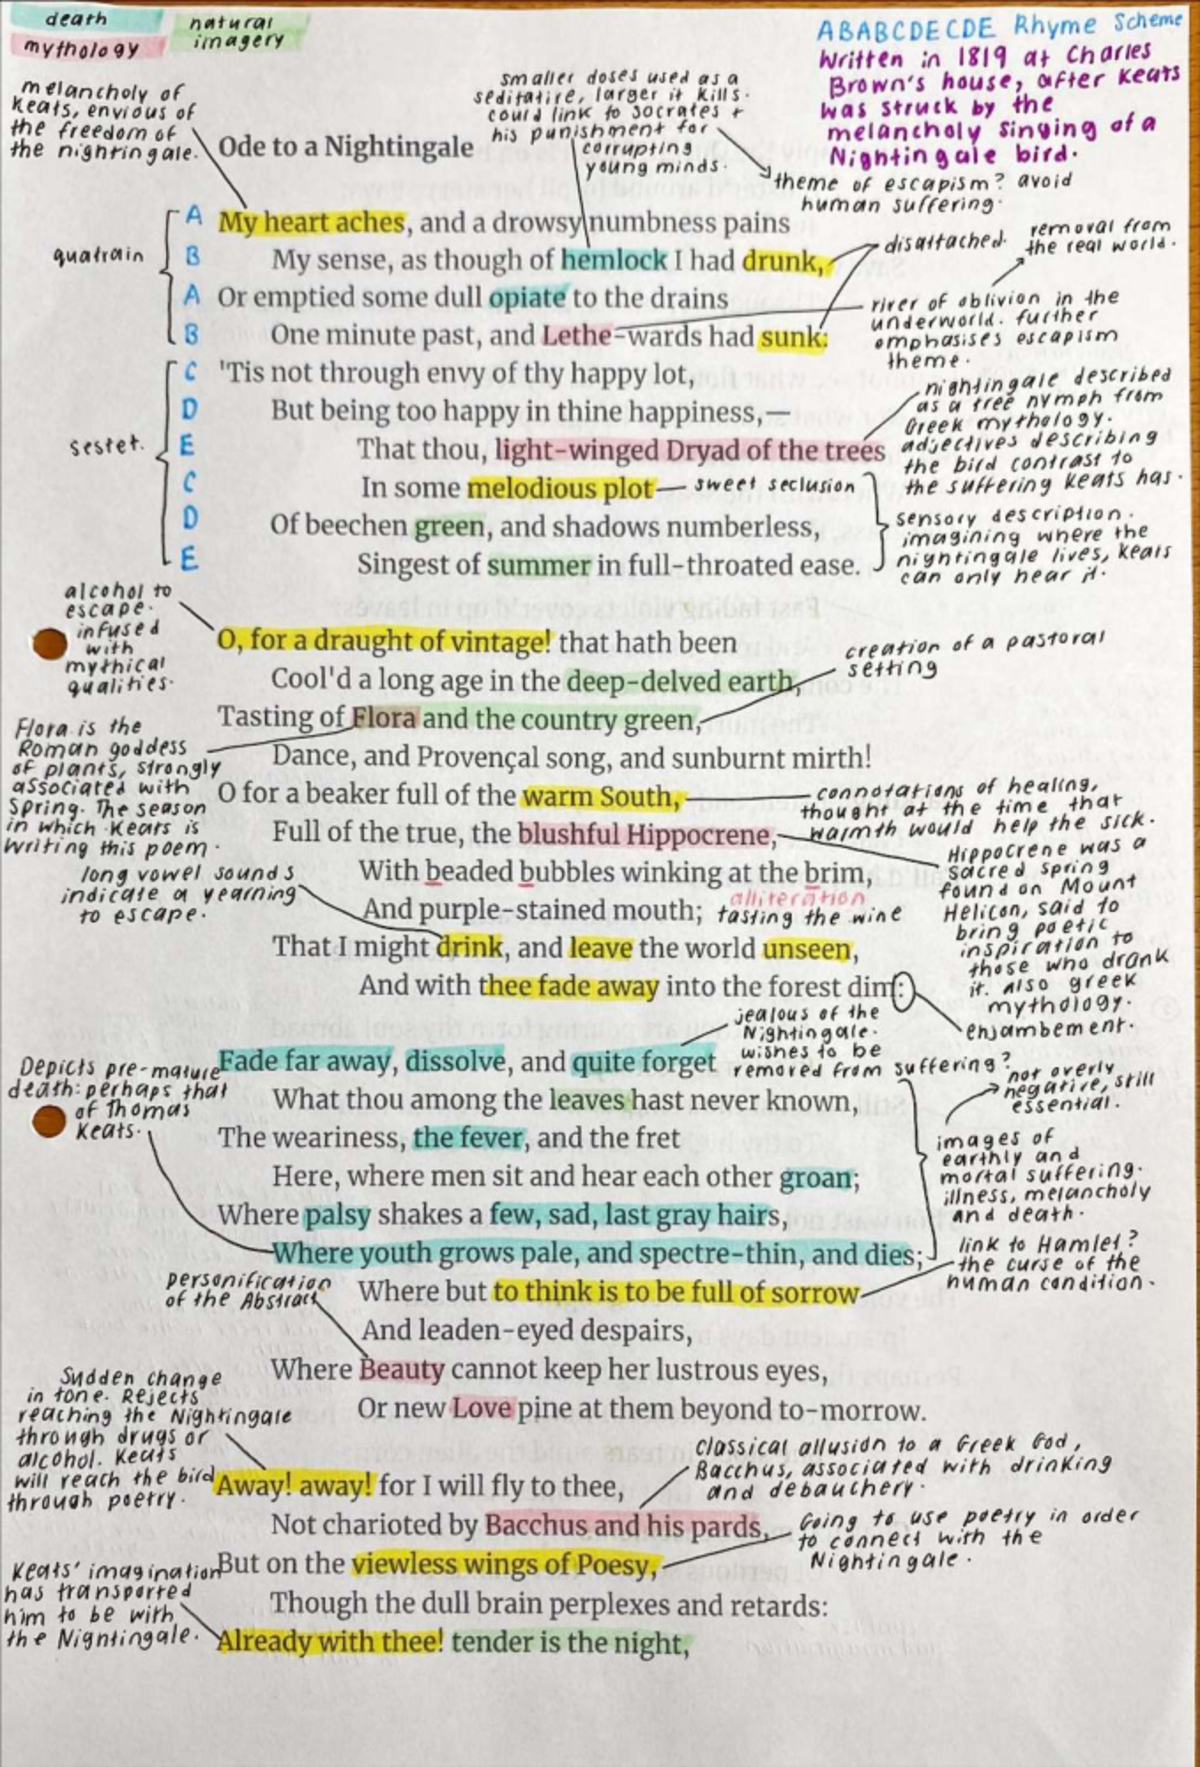 death
mythology
natural
imagery
ABABCDECDE Rhyme Scheme
Written in 1819 at Charles
Brown's house, after Keats
was struck by the
melancholy singing of a
Nightingale bird.
melancholy of
Keats, envious of
the freedom of
the nightingale.
smaller doses used as a
seditative, larger it kills.
could link to socrates +
his punishment for
corrupting
young minds.
theme of escapism? avoid
human suffering.
Ode to a Nightingale
quatrain
A My heart aches, and a drowsy numbness pains
B My sense, as though of hemlock I had drunk,
A Or emptied some dull opiate to the drains
B One minute past, and Lethe-wards had sunk:
disattached.
removal from
the real world.
river of oblivion in the
underworld. further
emphasises escapism
theme.
sestet.
C 'Tis not through envy of thy happy lot,
D But being too happy in thine happiness,—
E That thou, light-winged Dryad of the trees
C In some melodious plot
D Of beechen green, and shadows numberless,
E Singest of summer in full-throated ease.
nightingale described
as a tree nymph from
Greek mythology.
adjectives describing
the bird contrast to
the suffering Keats has.
sweet seclusion
sensory description.
imagining where the
nightingale lives, Keats
can only hear it.
alcohol to
escape.
infused
with
mythical
qualities.
O, for a draught of vintage! that hath been
Cool'd a long age in the deep-delved earth,
Tasting of Flora and the country green,
Dance, and Provençal song, and sunburnt mirth!
O for a beaker full of the warm South,
Full of the true, the blushful Hippocrene,
With beaded bubbles winking at the brim,
And purple-stained mouth;
That I might drink, and leave the world unseen,
And with thee fade away into the forest dim:
creation of a pastoral
setting
Flora is the
Roman goddess
of plants, strongly
associated with
Spring. The season
in which Keats is
writing this poem.
connotations of healing,
thought at the time that
warmth would help the sick.
long vowel sounds
indicate a yearning
to escape.
alliteration
tasting the wine
Hippocrene was a
sacred spring
found on Mount
Helicon, said to
bring poetic
inspiration to
those who drank
it. also greek
mythology.
enjambement.
jealous of the
Nightingale.
wishes to be
removed from suffering?
Depicts pre-mature
death: perhaps that
of Thomas
Keats.
Fade far away, dissolve, and quite forget
What thou among the leaves hast never known,
The weariness, the fever, and the fret
Here, where men sit and hear each other groan;
Where palsy shakes a few, sad, last gray hairs,
Where youth grows pale, and spectre-thin, and dies;
Where but to think is to be full of sorrow
And leaden-eyed despairs,
Where Beauty cannot keep her lustrous eyes,
Or new Love pine at them beyond to-morrow.
not overly
negative, still
essential.
images of
earthly and
mortal suffering.
illness, melancholy
and death.
link to Hamlet?
the curse of the
human condition.
personification
of the Abstract
Sudden change
in tone. Rejects
reaching the Nightingale
through drugs or
alcohol. Keats
will reach the bird
through poetry.
Away! away! for I will fly to thee,
Not charioted by Bacchus and his pards,
But on the viewless wings of Poesy,
Though the dull brain perplexes and retards:
Already with thee! tender is the night,
classical allusion to a Greek God,
Bacchus, associated with drinking
and debauchery.
Going to use poetry in order
to connect with the
Nightingale.
Keats' imagination
has transported
him to be with
the Nightingale.